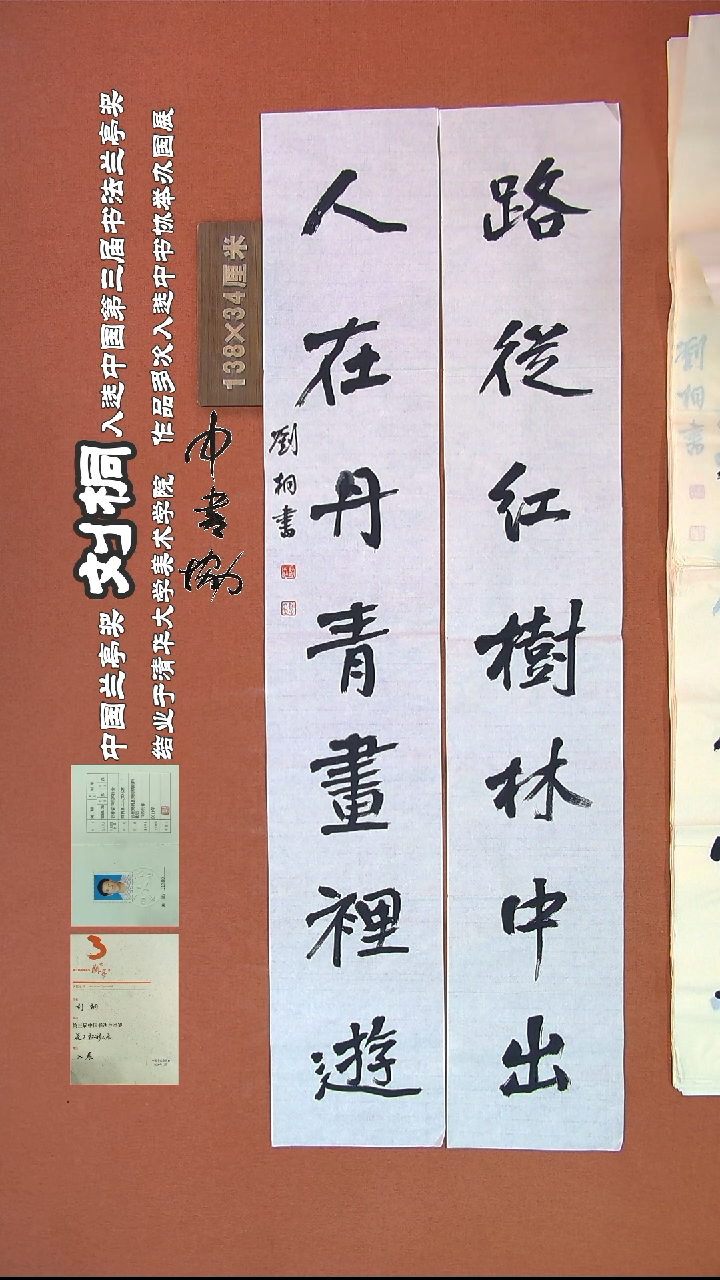 路從紅樹林中出
人在丹青畫裡遊
劉桐書
138×34厘米
中国兰亭奖 刘桐 入选中国第三届书法兰亭奖
结业于清华大学美术学院 作品多次入选中书协举办国展
中书协
劉桐書